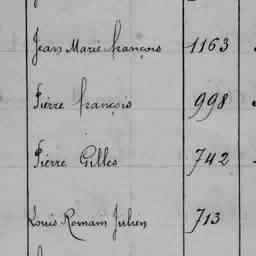 Jean Marie françois 1163
Pierre françois 998
Pierre Gilles 742
Louis Romain Julien 713